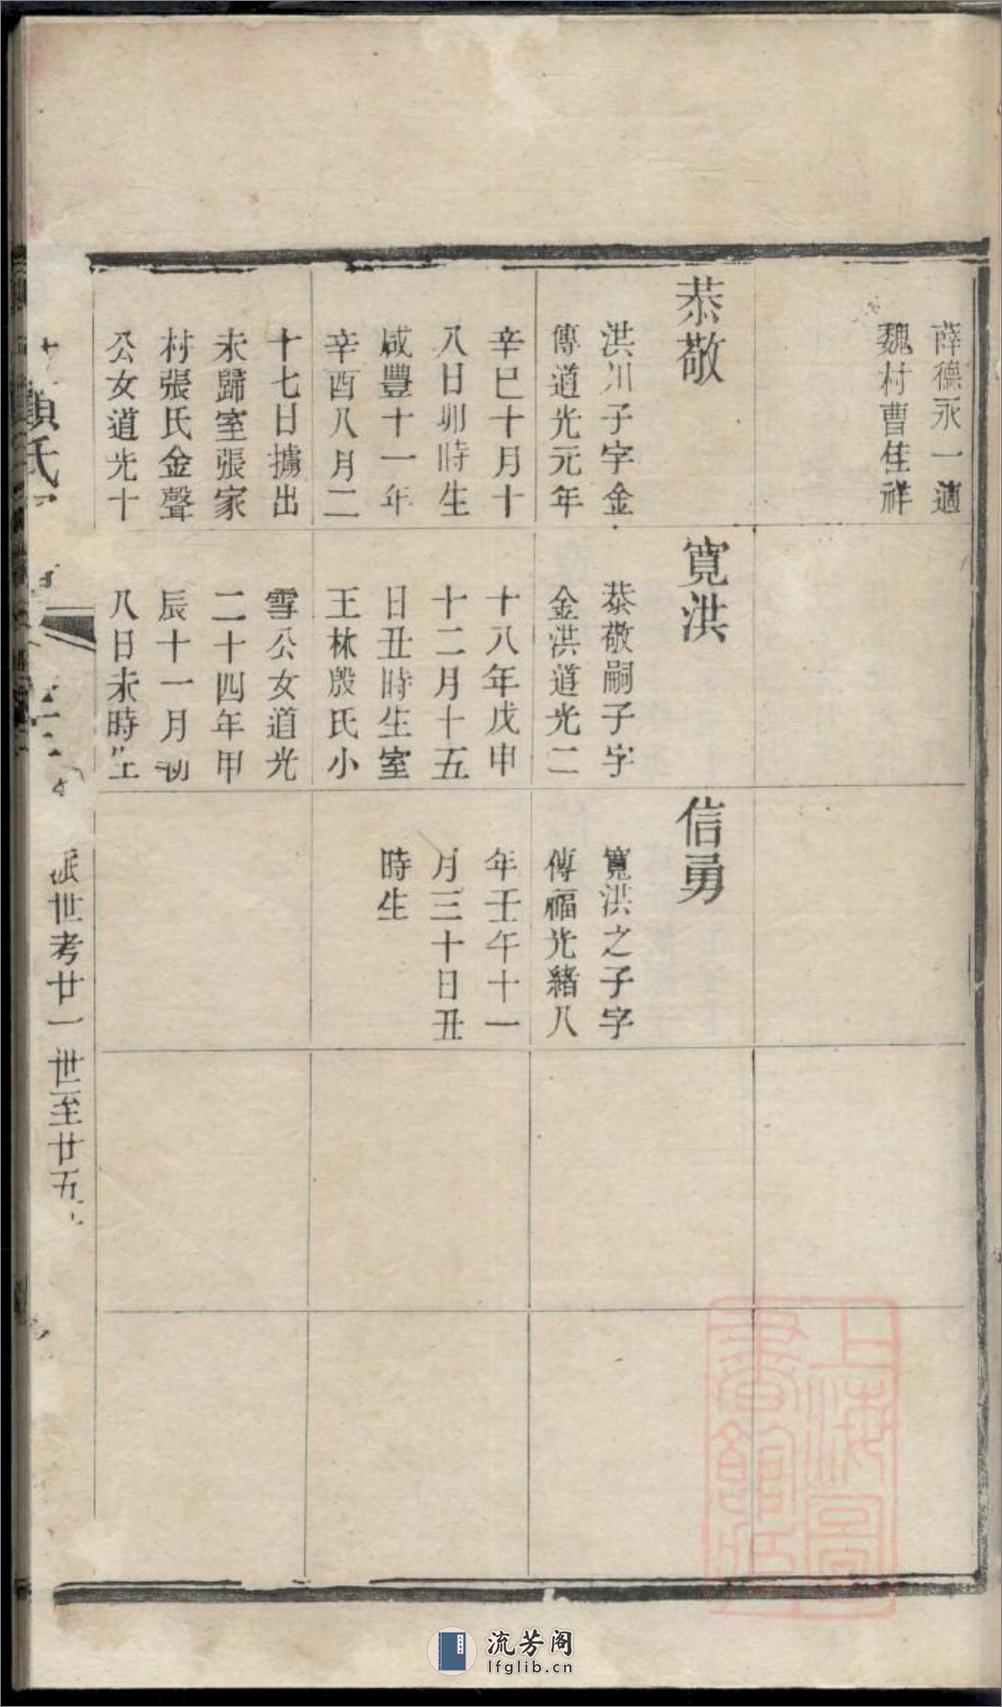 薛德永一適
魏村曹佳祥
恭敬
洪川子字金
傳道光元年
辛巳十月十
八日卯時生
咸豐十一年
辛酉八月二
十七日擄出
未歸室張家
村張氏金聲
公女道光十
寛洪
恭敬嗣子字
金洪道光二
十八年戊申
十二月十五
日丑時生室
王林殷氏小
雪公女道光
二十四年甲
辰十一月初
八日未時生
信勇
寬洪之子字
傳福光緒八
年壬午十一
月三十日丑
時生
顧氏
世考廿一世至廿五
上海圖
書館藏
流芳阁
lfglib.cn